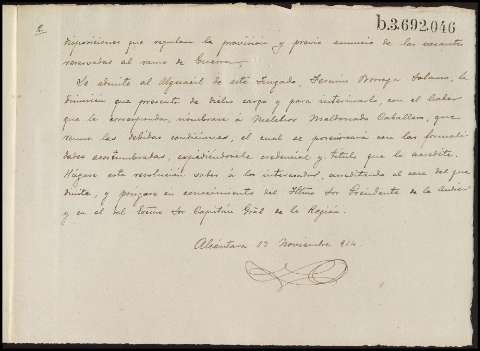 b.3.692.046
disposiciones que regulan la provisión y previo anuncio de las vacantes
reservadas al ramo de Guerra,
Se admite al Alguacil de este Juzgado, Fermin Solano, la
dimisión que presenta de dicho cargo y para interinarlo, con el haber
que le corresponda, nombrase á Melchor Maldonado Caballero, que
reune las debidas condiciones, el cual se posesionará con las formali
dades acostumbradas, expidiéndosele credencial y título que lo acredite.
Hágase esta resolución saber á los interesados, acreditando el cese del que
dimite, y póngase en conocimiento del Iltmo Sor Presidente de la Audien
y en el del Excmo Sor Capitán Gral de la Región.
Alcántara 13 Noviembre 914.